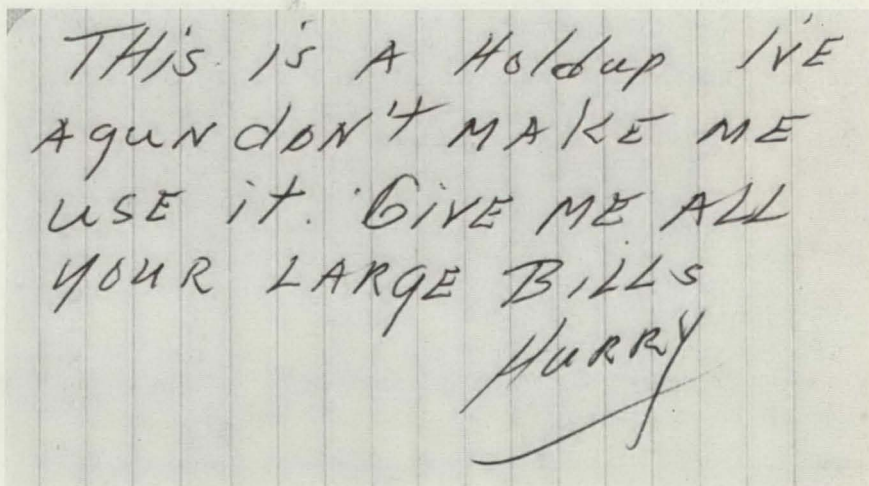 THis is A Holdup I'VE
A guN dON't MAKE ME
USE it. GiVE ME ALL
YOUR LARgE BiLLs
HURRY